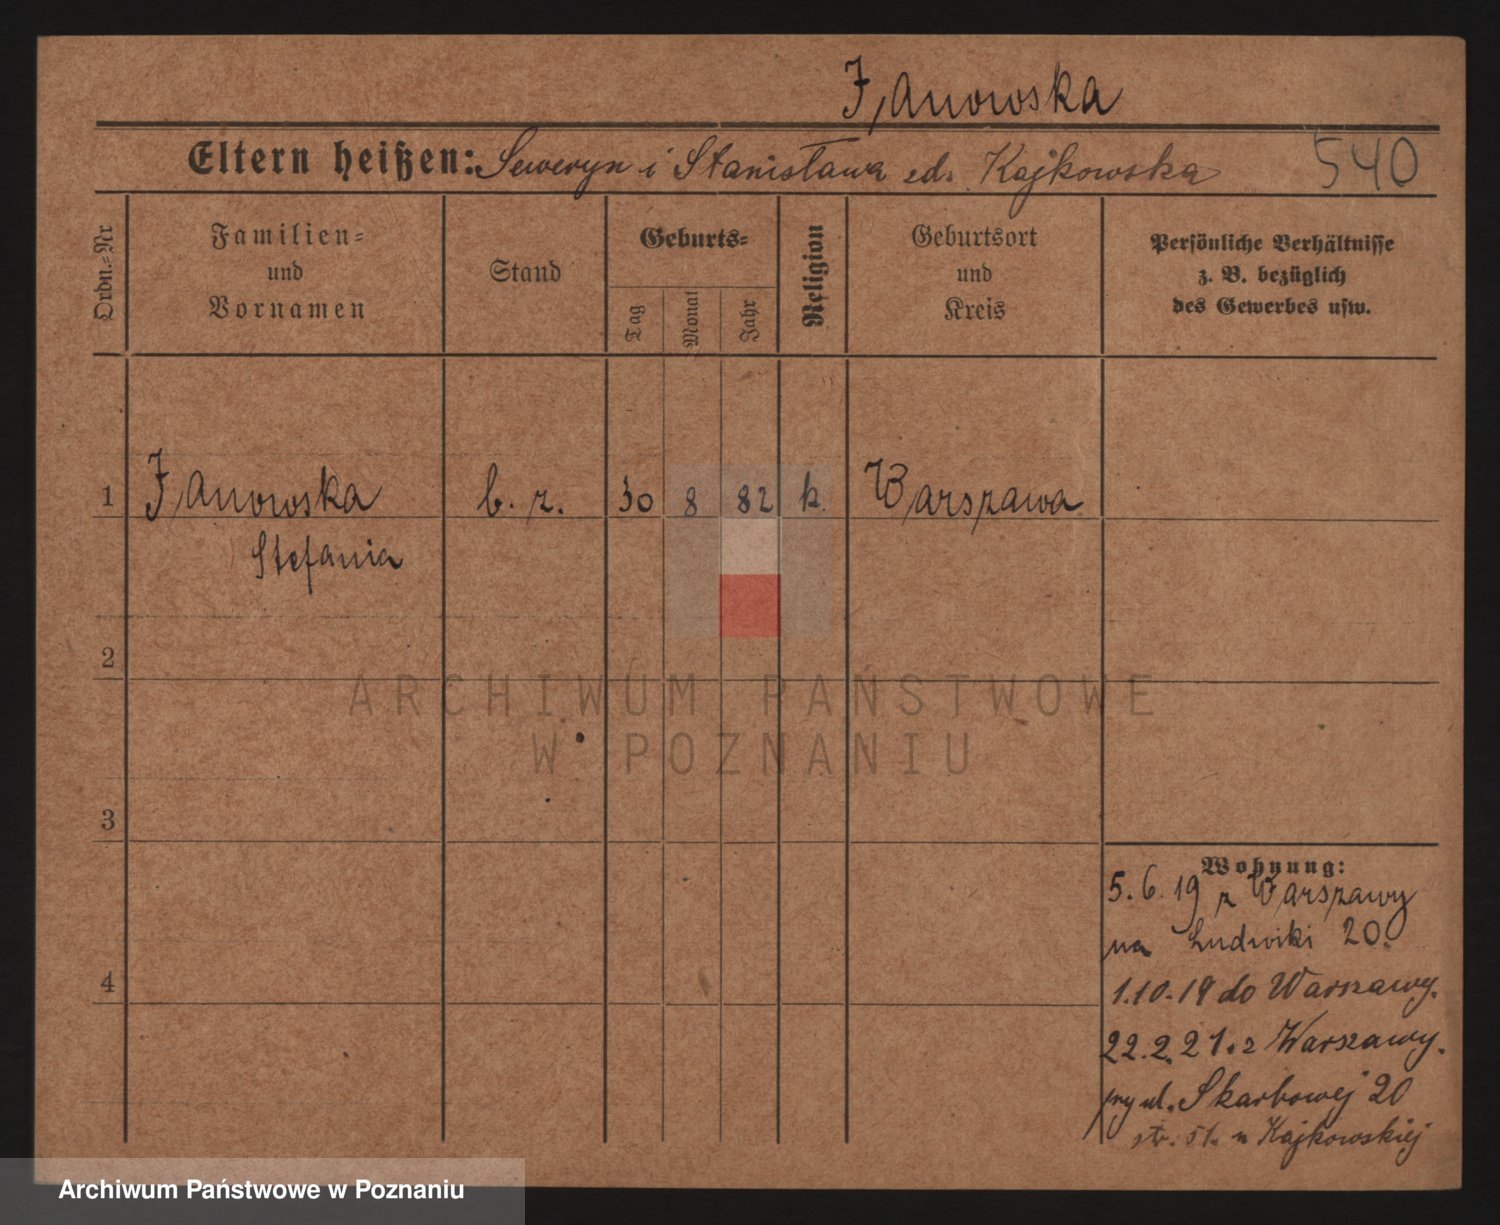 Janowska
Eltern heißen: Seweryn i Stanisława zd. Kajkowska 540
Ordn.=Nr
Familien=
und
Vornamen
Stand
Geburts=
Tag
Monat
Jahr
Religion
Geburtsort
und
Kreis
Persönliche Verhältnisse
z. B. bezüglich
des Gewerbes usw.
1 Janowska b. z. 30 8 82 k. Warszawa
Stefania
2
3
4
Wohnung:
5. 6. 19 z Warszawy
na Ludwiki 20.
1.10.19 do Warszawy.
22.2.21. z Warszawy.
przy ul. Skarbowej 20
u Kajkowskiej
ARCHIWUM PAŃSTWOWE
W POZNANIU
Archiwum Państwowe w Poznaniu